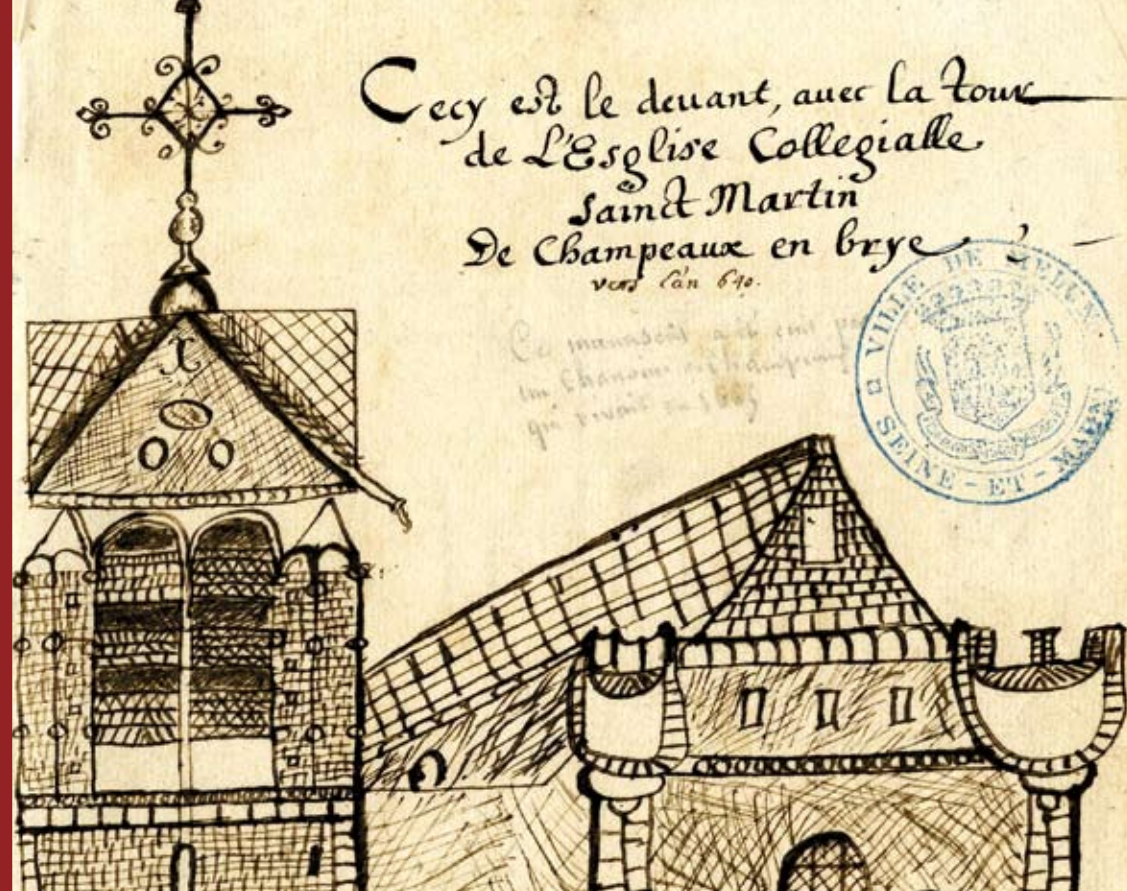 Cecy est le deuant, auec la tour
de L'Esglise Collegialle
sainct Martin
De Champeaux en brye
vers l'an 640.
Ce manuscrit a été
un Chanoine de Champeaux
qui vivait en
VILLE DE MELUN
SEINE-ET-MARNE